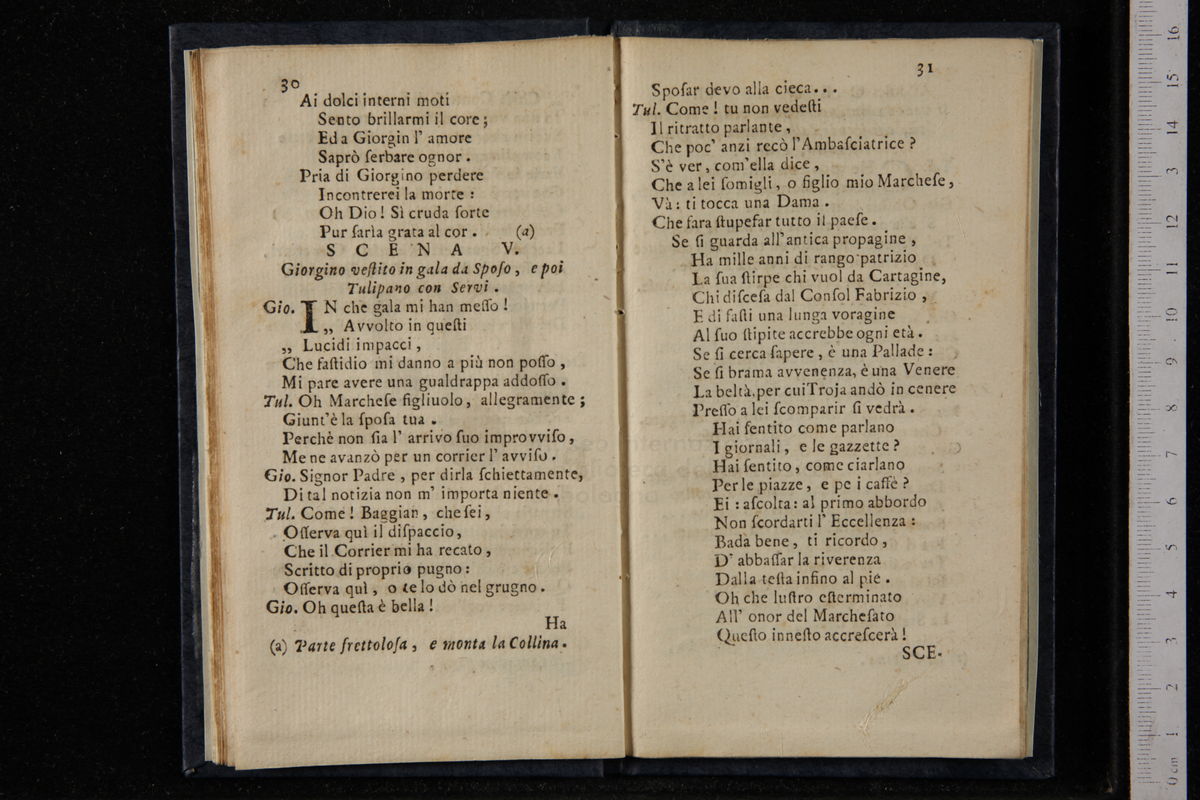 30
Ai dolci interni moti
Sento brillarmi il core;
Ed a Giorgin l' amore
Saprò ſerbare ognor.
Pria di Giorgino perdere
Incontrerei la morte:
Oh Dio! Sì cruda ſorte
Pur ſarìa grata al cor. (a)
SCENA V.
Giorgino veſtito in gala da Spoſo, e poi
Tulipano con Servi.
Gio. IN che gala mi han meſſo!
„ Avvolto in queſti
„ Lucidi impacci,
Che faſtidio mi danno a più non poſſo,
Mi pare avere una gualdrappa addoſſo.
Tul. Oh Marcheſe figliuolo, allegramente;
Giunt'è la ſpoſa tua.
Perchè non ſia l' arrivo ſuo improvviſo,
Me ne avanzò per un corrier l' avviſo.
Gio. Signor Padre, per dirla ſchiettamente,
Di tal notizia non m' importa niente.
Tul. Come! Baggian, che ſei,
Oſſerva quì il diſpaccio,
Che il Corrier mi ha recato,
Scritto di proprio pugno:
Oſſerva quì, o te lo dò nel grugno.
Gio. Oh queſta è bella!
Ha
(a) Parte frettoloſa, e monta la Collina.
31
Spoſar devo alla cieca...
Tul. Come! tu non vedeſti
Il ritratto parlante,
Che poc' anzi recò l'Ambaſciatrice?
S'è ver, com'ella dice,
Che a lei ſomigli, o figlio mio Marcheſe,
Và: ti tocca una Dama.
Che fara ſtupefar tutto il paeſe.
Se ſi guarda all'antica propagine,
Ha mille anni di rango patrizio
La ſua ſtirpe chi vuol da Cartagine,
Chi diſceſa dal Conſol Fabrizio,
E di faſti una lunga voragine
Al ſuo ſtipite accrebbe ogni età.
Se ſi cerca ſapere, è una Pallade:
Se ſi brama avvenenza, è una Venere
La beltà, per cui Troja andò in cenere
Preſſo a lei ſcomparir ſi vedrà.
Hai ſentito come parlano
I giornali, e le gazzette?
Hai ſentito, come ciarlano
Per le piazze, e pe i caffè?
Ei: aſcolta: al primo abbordo
Non ſcordarti l' Eccellenza:
Bada bene, ti ricordo,
D' abbaſſar la riverenza
Dalla teſta inſino al piè.
Oh che luſtro eſterminato
All' onor del Marcheſato
Queſto inneſto accreſcerà!
SCE-
0 cm 1 2 3 4 5 6 7 8 9 10 11 12 13 14 15 16